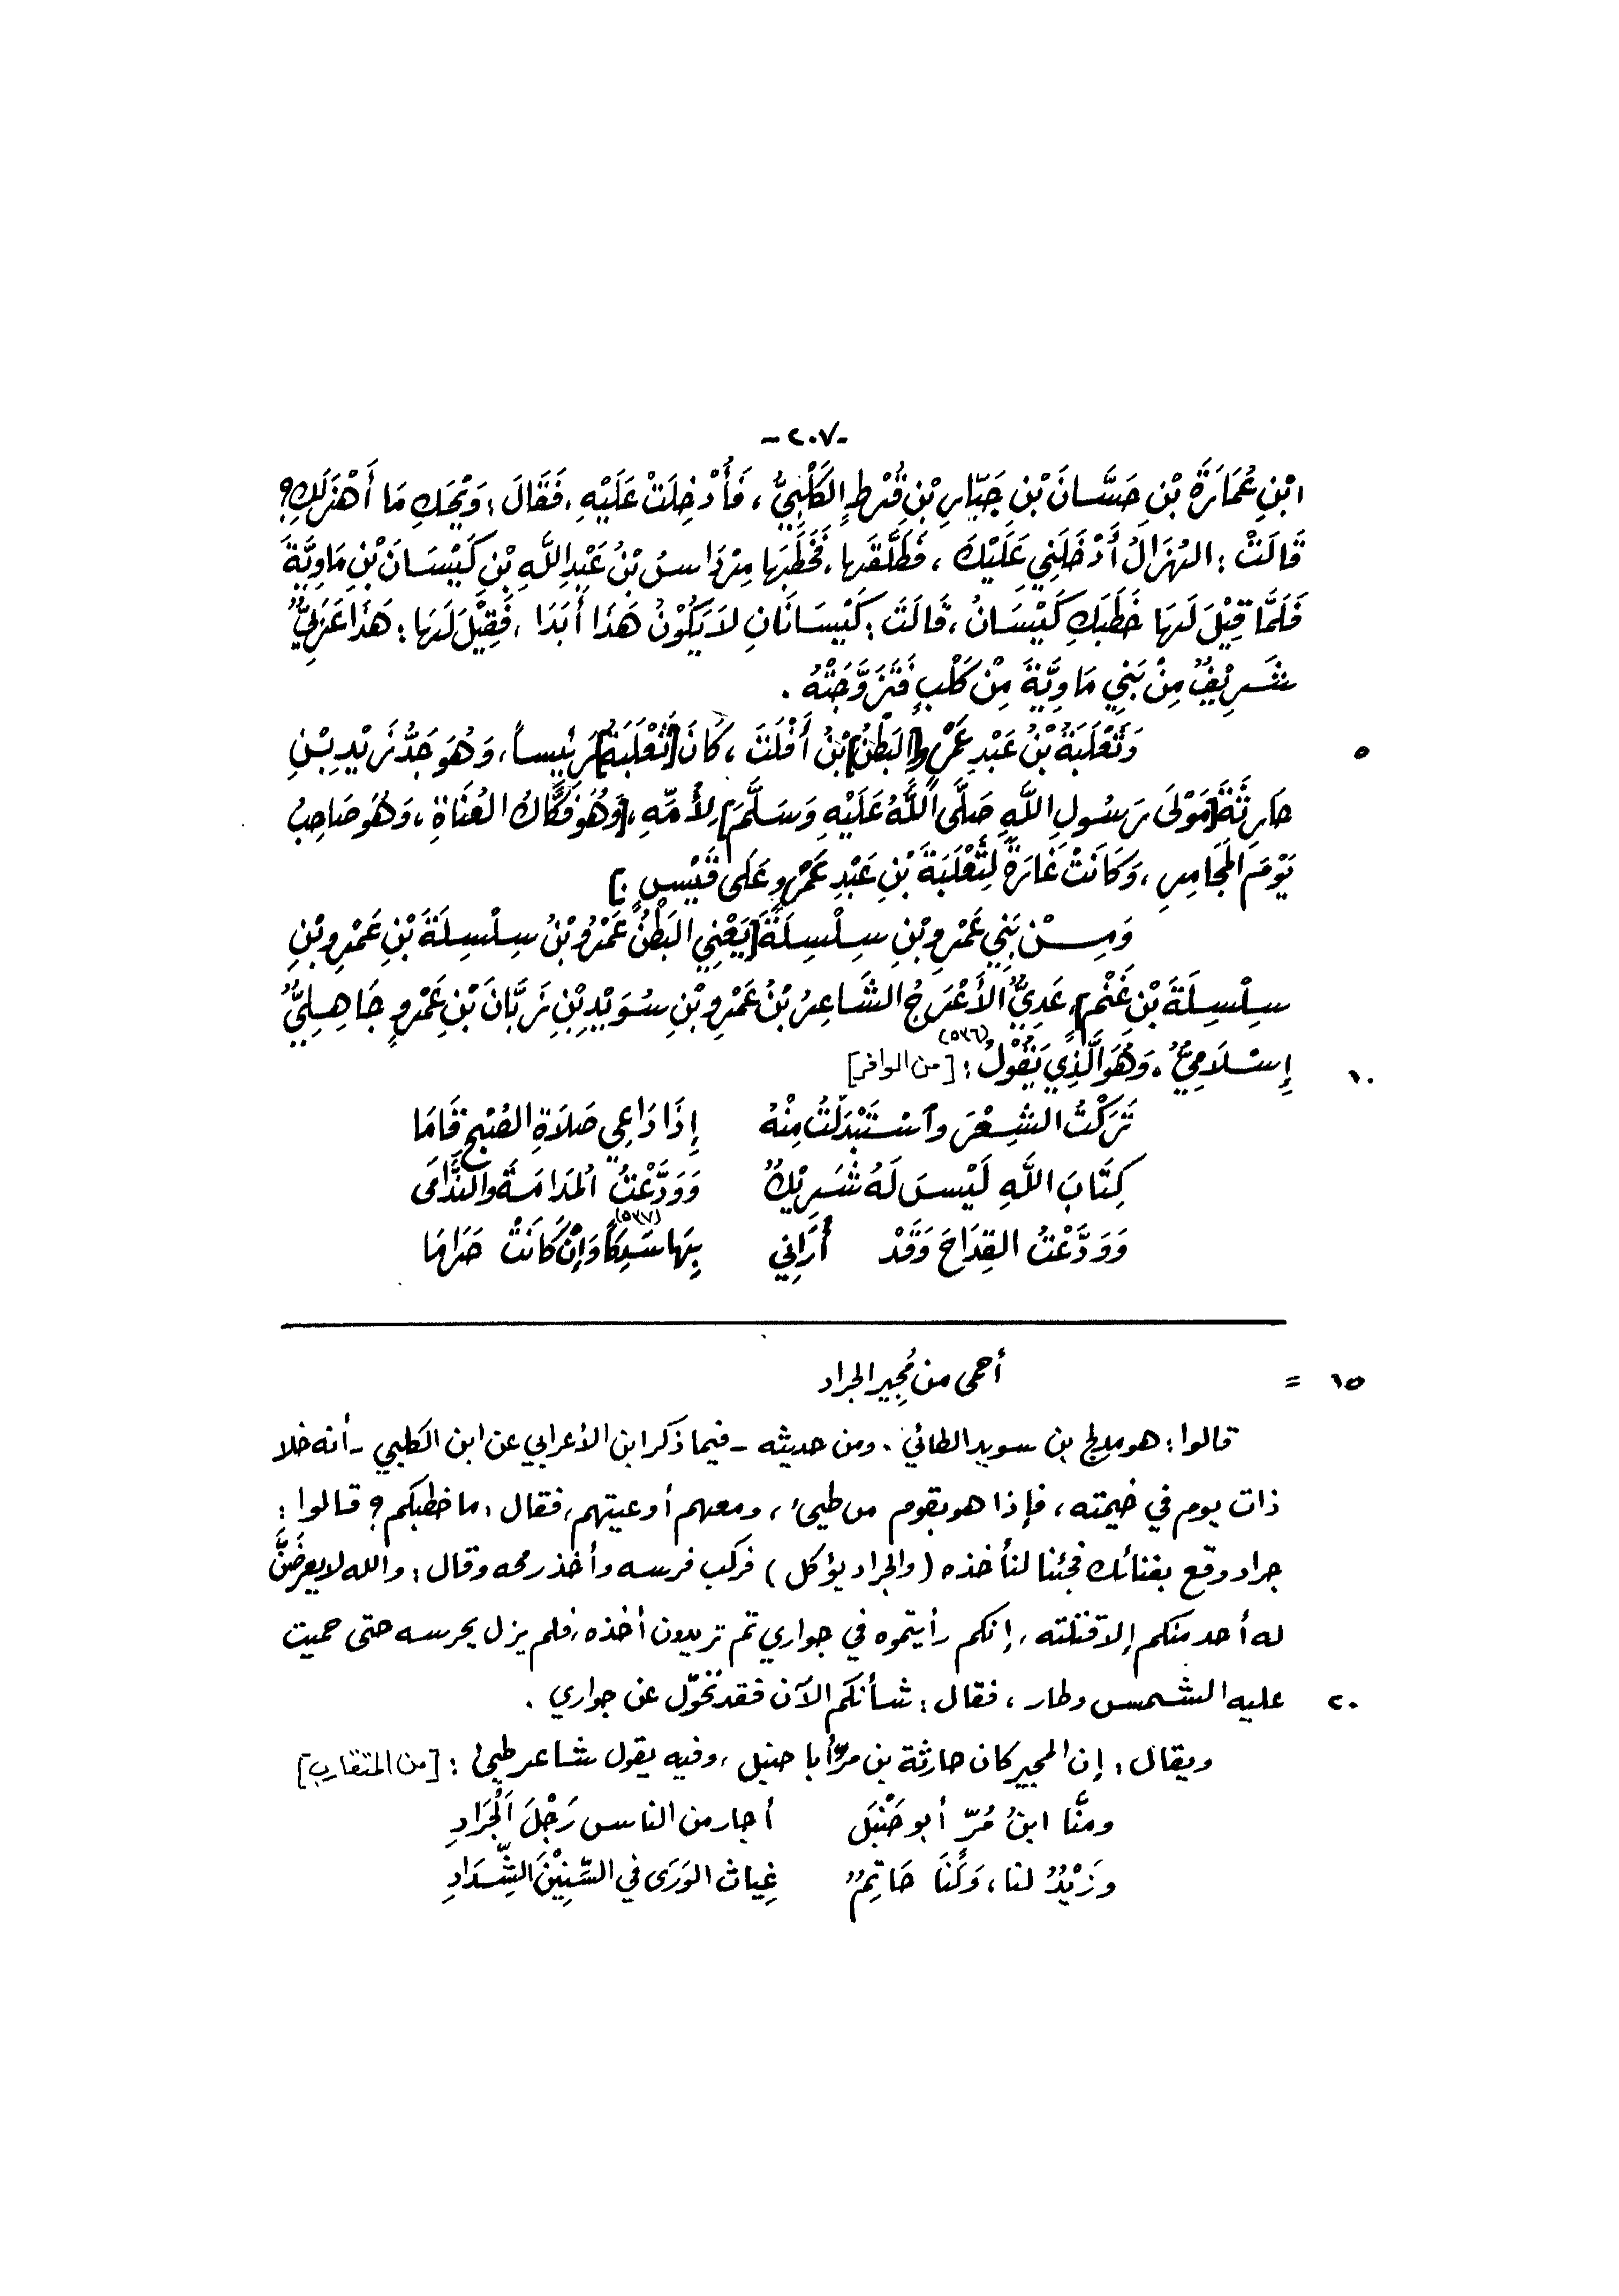 -٢٠٧-
ابْنِ عُمَارَةَ بْنِ حَسَّانَ بْنِ جَبَّارِ بْنِ قُرْطٍ الكَلْبِيُّ، فَأُدْخِلَتْ عَلَيْهِ، فَقَالَ: وَيْحَكِ مَا أَهْزَلَكِ؟
قَالَتْ: الهُزَالُ أَدْخَلَنِي عَلَيْكَ، فَطَلَّقَهَا، فَخَطَبَهَا مِرْدَاسُ بْنُ عَبْدِ اللَّهِ بْنِ كَيْسَانَ بْنِ مَاوِيَّةَ
فَلَمَّا قِيْلَ لَهَا خَطَبَكِ كَيْسَانُ، قَالَتْ: كَيْسَانَانِ لاَ يَكُوْنُ هَذَا أَبَدَا، فَقِيْلَ لَهَا: هَذَا عَرَبِيٌّ
شَرِيْفٌ مِنْ بَنِي مَاوِيَّةَ مِنْ كَلْبٍ فَتَزَوَّجَتْهُ.
٥ وَثَعْلَبَةُ بْنُ عَبْدِ عَمْرٍو [البَطْنُ] بْنُ أَفْلَتَ، كَانَ [ثَعْلَبَةُ] رَئِيساً، وَهُوَ جَدُّ زَيْدِ بْنِ
حَارِثَةَ [مَوْلَى رَسُولِ اللَّهِ صَلَّى اللَّهُ عَلَيْهِ وَسَلَّمَ] لِأُمِّهِ، [وَهُوَ فَكَّاكُ العُنَاةِ، وَهُوَ صَاحِبُ
يَوْمَ المَجَامِرِ، وَكَانَتْ غَارَةً لِثَعْلَبَةَ بْنِ عَبْدِ عَمْرٍو عَلَى قَيْسٍ.]
وَمِنْ بَنِي عَمْرِو بْنِ سِلْسِلَةَ [يَعْنِي البَطْنُ عَمْرُو بْنُ سِلْسِلَةَ بْنِ عَمْرِو بْنِ
سِلْسِلَةَ بْنِ غَنْمٍ]، عَدِيُّ الأَعْرَجُ الشَّاعِرُ بْنُ عَمْرِو بْنِ سُوَيْدِ بْنِ زَبَّانَ بْنِ عَمْرٍو جَاهِلِيٌّ
١٠ إِسْلَامِيٌّ، وَهُوَ الَّذِي يَقُوْلُ (٥٣٦): [من الوافر]
تَرَكْتُ الشِّعْرَ وَاسْتَبْدَلْتُ مِنْهُ إِذَا دَاعِي صَلَاةِ الصُّبْحِ قَامَا
كِتَابَ اللَّهِ لَيْسَ لَهُ شَرِيْكٌ وَوَدَّعْتُ المُدَامَةَ وَالنَّدَامَى
وَوَدَّعْتُ القِدَاحَ وَقَدْ أُرَانِي بِهَا سَدِكَاً (٥٣٧) وَإِنْ كَانَتْ حَرَامَا
١٥ = أحمى من مُجِير الجراد
قالوا: هو مدلج بن سويد الطائي، ومن حديثه - فيما ذكر ابن الأعرابي عن ابن الكلبي - أنه خلا
ذات يوم في خيمته، فإذا هو بقوم من طيئ، ومعهم أوعيتهم، فقال: ما خطبكم؟ قالوا:
جراد وقع بفنائك فجئنا لنأخذه (والجراد يؤكل) فركب فرسه وأخذ رمحه وقال: والله لا يعرضَنَّ
له أحد منكم إلا قتلته، إنكم رأيتموه في جواري ثم تريدون أخذه، فلم يزل يحرسه حتى حميت
٢٠ عليه الشمس وطار، فقال: شأنكم الآن فقد تحوّل عن جواري.
ويقال: إن المجير كان حارثة بن مرّ أبا حنبل، وفيه يقول شاعر طيئ: [من المتقارب]
ومنَّا ابنُ مُرّ أبو حَنْبَل أجار من الناس رَجْلَ الْجَرَادِ
وزَيْدٌ لنا، وَلَنَا حَاتِمٌ غِياث الوَرَى في السِّنِيْنَ الشِّدَادِ